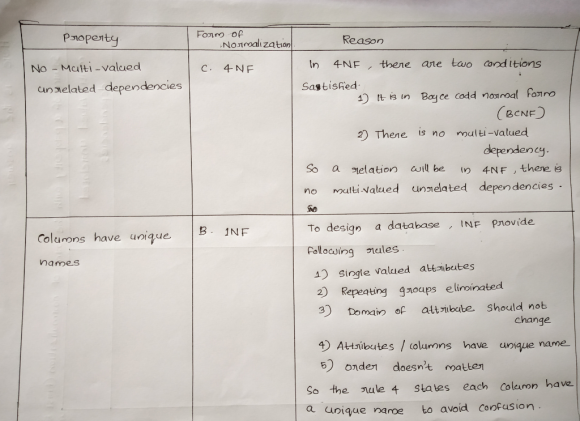 Property
Form of
Normalization
Reason
No - Multi - valued
unrelated dependencies
C. 4NF
In 4NF, there are two conditions
Sastisfied.
1) It is in Boyce codd normal form
(BCNF)
2) There is no multi-valued
dependency.
So a relation will be in 4NF, there is
no multivalued unrelated dependencies.
So
Columns have unique
names
B. 1NF
To design a database, 1NF provide
following rules.
1) Single valued attributes
2) Repeating groups eliminated
3) Domain of attribute should not
change
4) Attributes / columns have unique name
5) order doesn't matter
So the rule 4 states each column have
a unique name to avoid confusion.